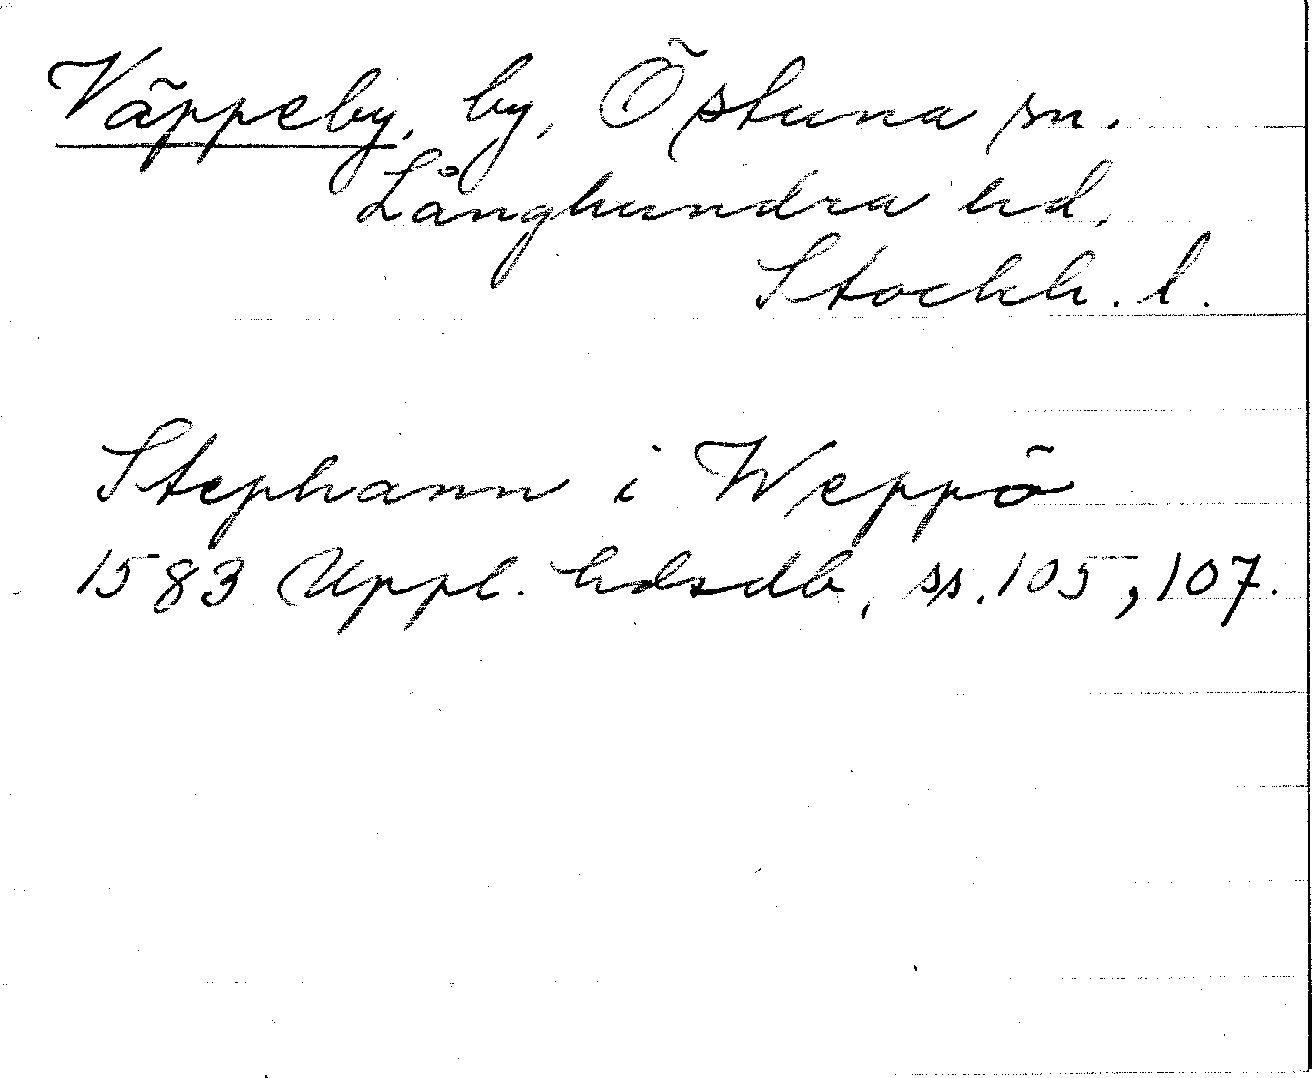 Väppeby, by, Östuna sn.
Långhundra hd.
Stockh. l.
Stephann i Weppö
1583 Uppl. hdsdb, ss. 105, 107.